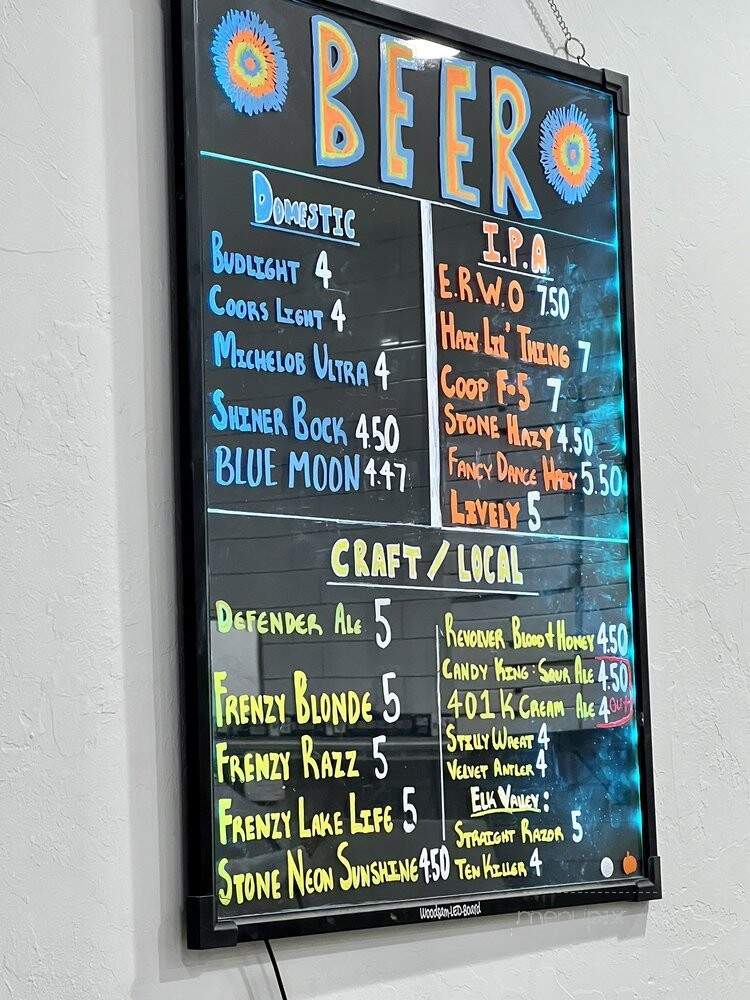 BEER
DOMESTIC
BUDLIGHT 4
COORS LIGHT 4
MICHELOB ULTRA 4
SHINER BOCK 4.50
BLUE MOON 4.47
I.P.A
E.R.W.O 7.50
HAZY LIL' THING 7
COOP F-5 7
STONE HAZY 4.50
FANCY DANCE HAZY 5.50
LIVELY 5
CRAFT / LOCAL
DEFENDER ALE 5
FRENZY BLONDE 5
FRENZY RAZZ 5
FRENZY LAKE LIFE 5
STONE NEON SUNSHINE 4.50
REVOLVER BLOOD + HONEY 4.50
CANDY KING: SOUR ALE 4.50
401K CREAM ALE 4 OUT
STILLY WHEAT 4
VELVET ANTLER 4
ELK VALLEY:
STRAIGHT RAZOR 5
TEN KILLER 4
Woodsam-LED-Board
menupix